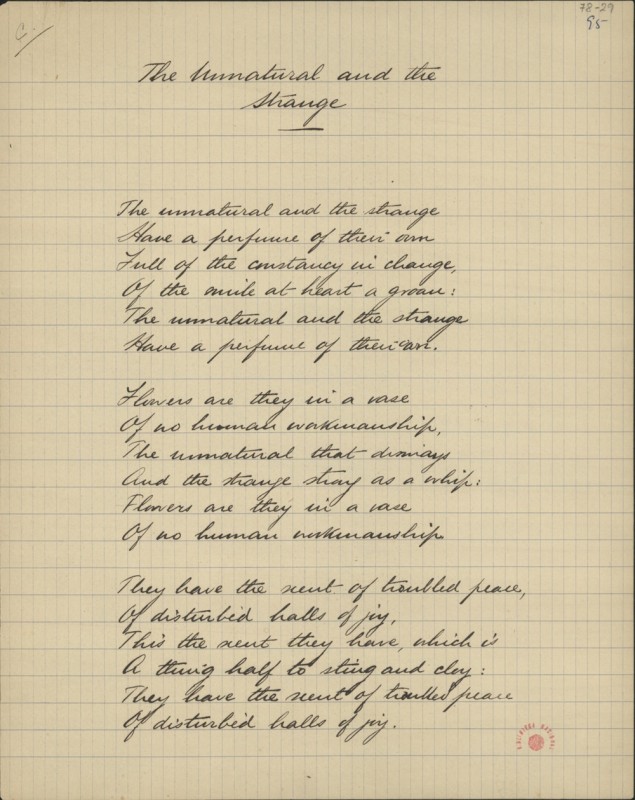 C.
78-29
95
The Unnatural and the
Strange
The unnatural and the strange
Have a perfume of their own
Full of the constancy in change,
Of the smile at heart a groan:
The unnatural and the strange
Have a perfume of their own.
Flowers are they in a vase
Of no human workmanship,
The unnatural that dismays
And the strange stray as a whip:
Flowers are they in a vase
Of no human workmanship.
They have the scent of troubled peace,
Of disturbed halls of joy,
This the scent they have, which is
A thing half to sting and cloy:
They have the scent of troubled peace
Of disturbed halls of joy.
BIBLIOTECA NACIONAL